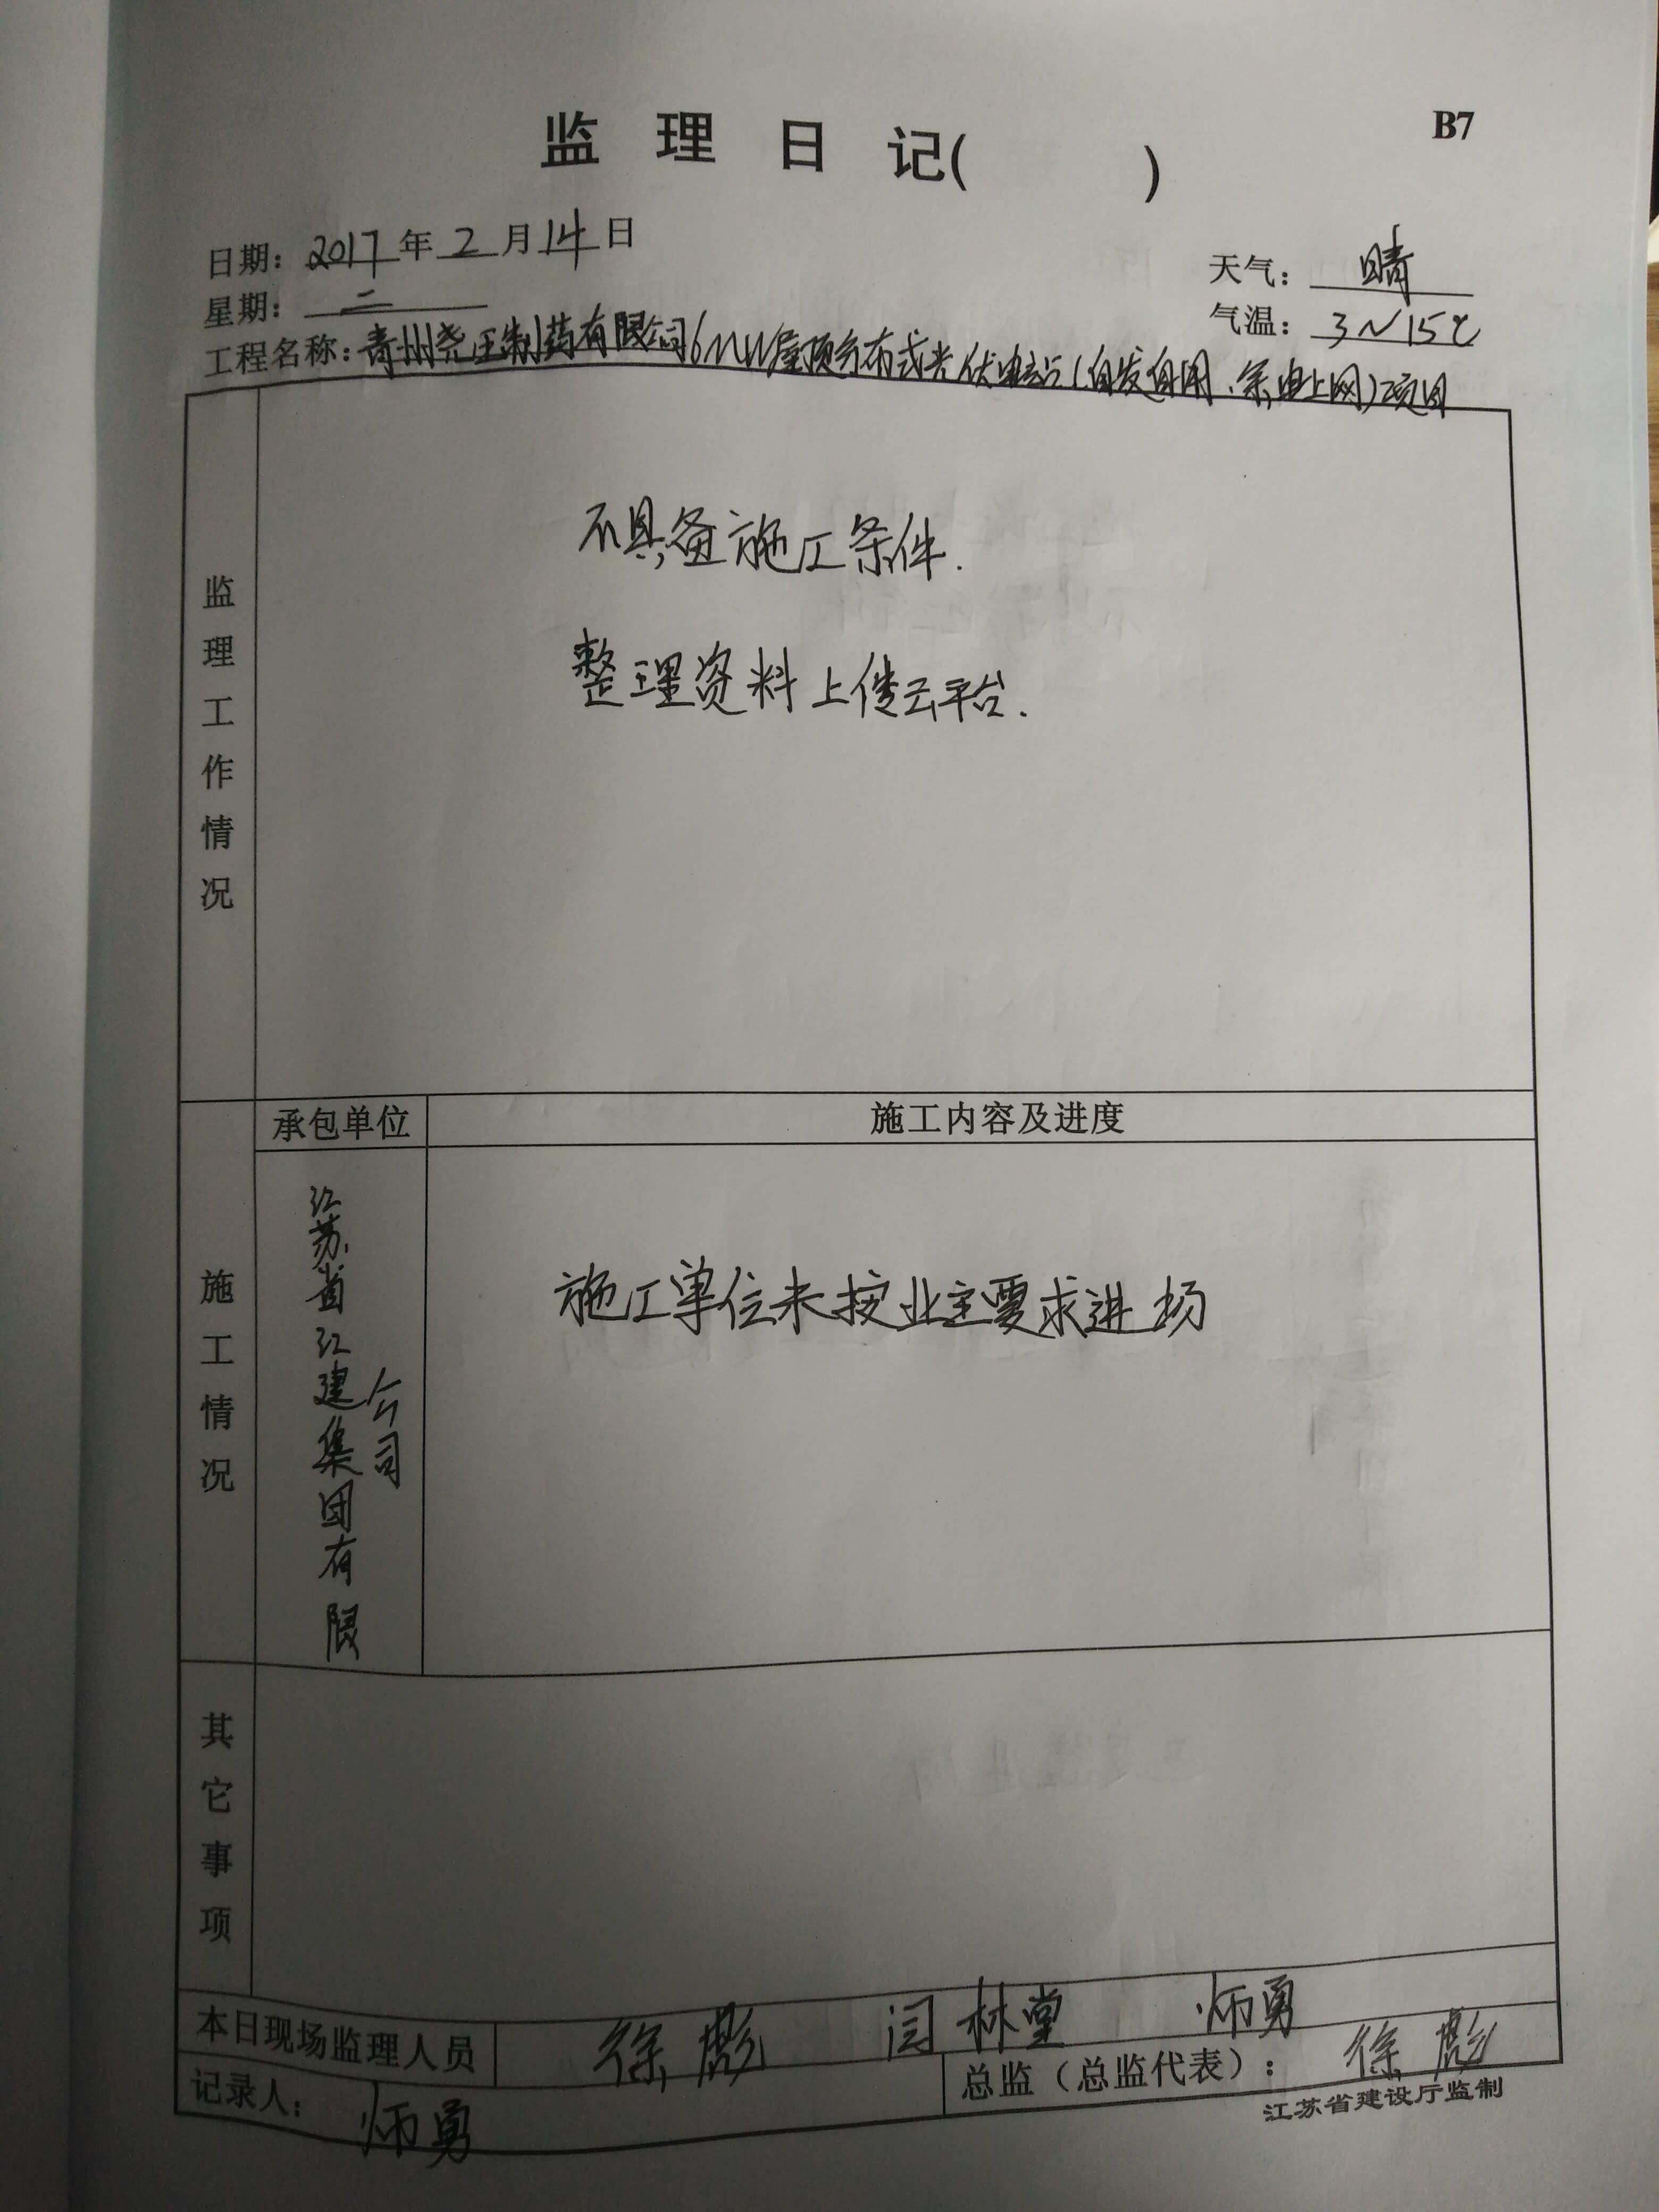 B7
监理日记( )
日期: 2017年2月14日
天气: 晴
星期: 二
气温: 3~15℃
工程名称: 青州尧王制药有限公司6MW屋顶分布式光伏电站(自发自用、余电上网)项目
监理工作情况
不具备施工条件.
整理资料上传云平台.
承包单位
施工内容及进度
施工情况
江苏省江建集团有限公司
施工单位未按业主要求进场
其它事项
本日现场监理人员
徐彪 闫林堂 师勇
记录人: 师勇
总监（总监代表）: 徐彪
江苏省建设厅监制